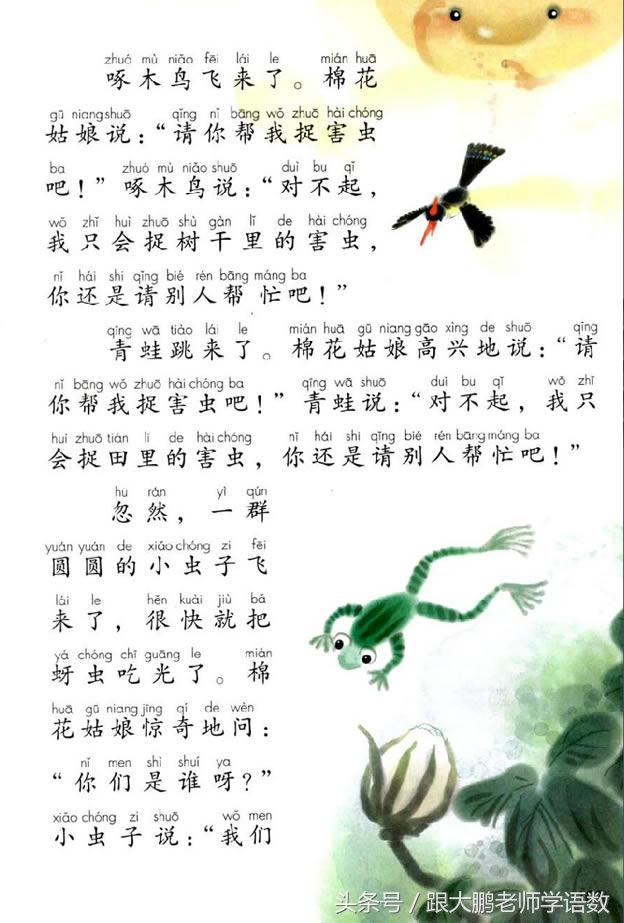 zhuó mù niǎo fēi lái le mián huā
啄木鸟飞来了。棉花
gū niang shuō qǐng nǐ bāng wǒ zhuō hài chóng
姑娘说：“请你帮我捉害虫
ba zhuó mù niǎo shuō duì bu qǐ
吧！”啄木鸟说：“对不起，
wǒ zhǐ huì zhuō shù gàn lǐ de hài chóng
我只会捉树干里的害虫，
nǐ hái shi qǐng bié rén bāng máng ba
你还是请别人帮忙吧！”
qīng wā tiào lái le mián huā gū niang gāo xìng de shuō qǐng
青蛙跳来了。棉花姑娘高兴地说：“请
nǐ bāng wǒ zhuō hài chóng ba qīng wā shuō duì bu qǐ wǒ zhǐ
你帮我捉害虫吧！”青蛙说：“对不起，我只
huì zhuō tián lǐ de hài chóng nǐ hái shi qǐng bié rén bāng máng ba
会捉田里的害虫，你还是请别人帮忙吧！”
hū rán yì qún
忽然，一群
yuán yuán de xiǎo chóng zi fēi
圆圆的小虫子飞
lái le hěn kuài jiù bǎ
来了，很快就把
yá chóng chī guāng le mián
蚜虫吃光了。棉
huā gū niang jīng qí de wèn
花姑娘惊奇地问：
nǐ men shì shuí ya
“你们是谁呀？”
xiǎo chóng zi shuō wǒ men
小虫子说：“我们
头条号／跟大鹏老师学语数